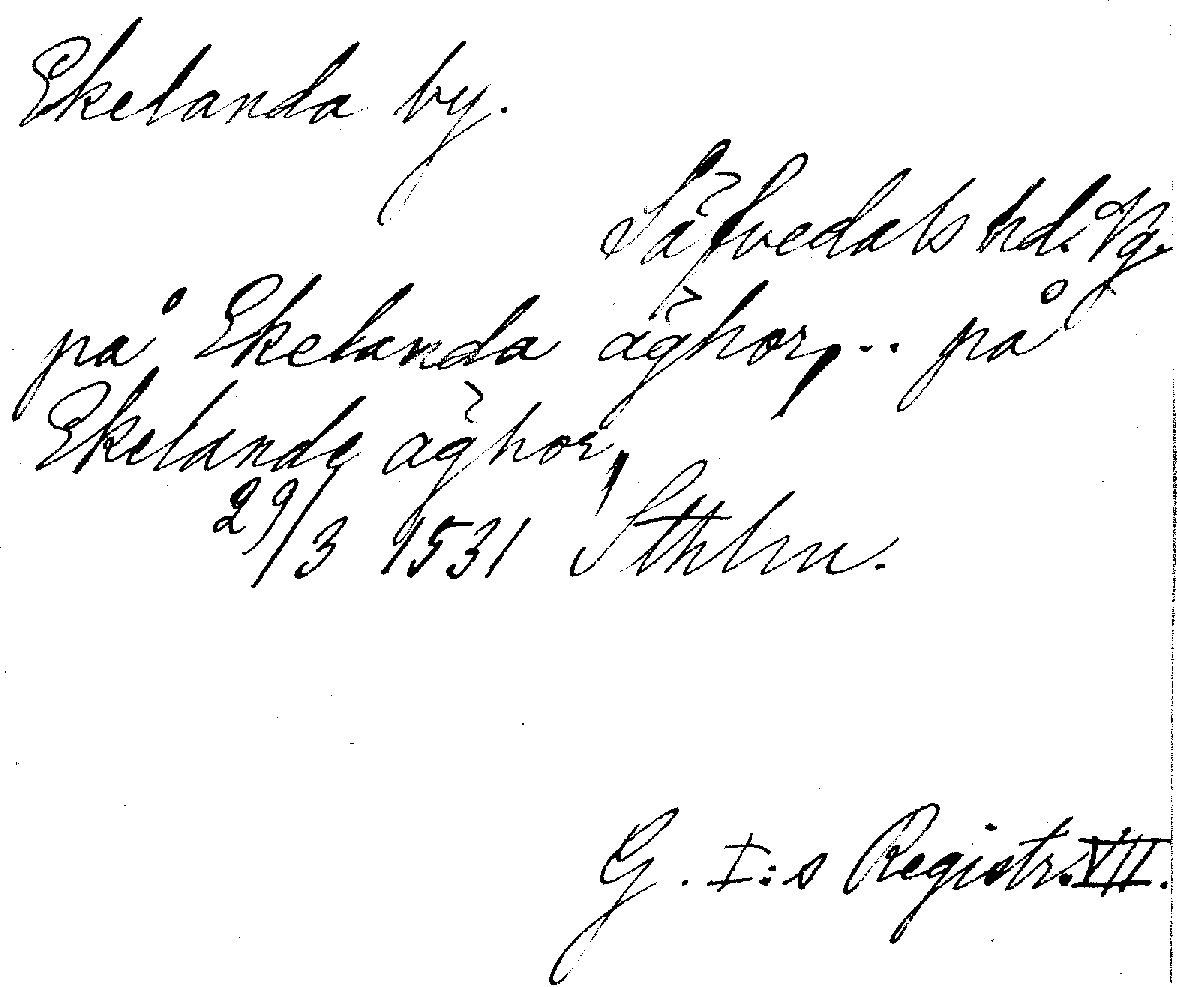 Ekelanda by.
Säfvedals hd. Vg.
på Ekelanda äghor, .. på
Ekelande äghor,
29/3 1531 Sthlm.
G. I:s Registr. VII.